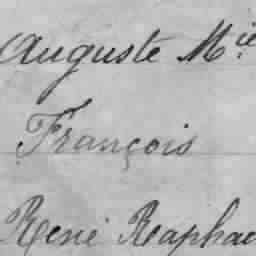 Auguste Mie
François
René Raphae